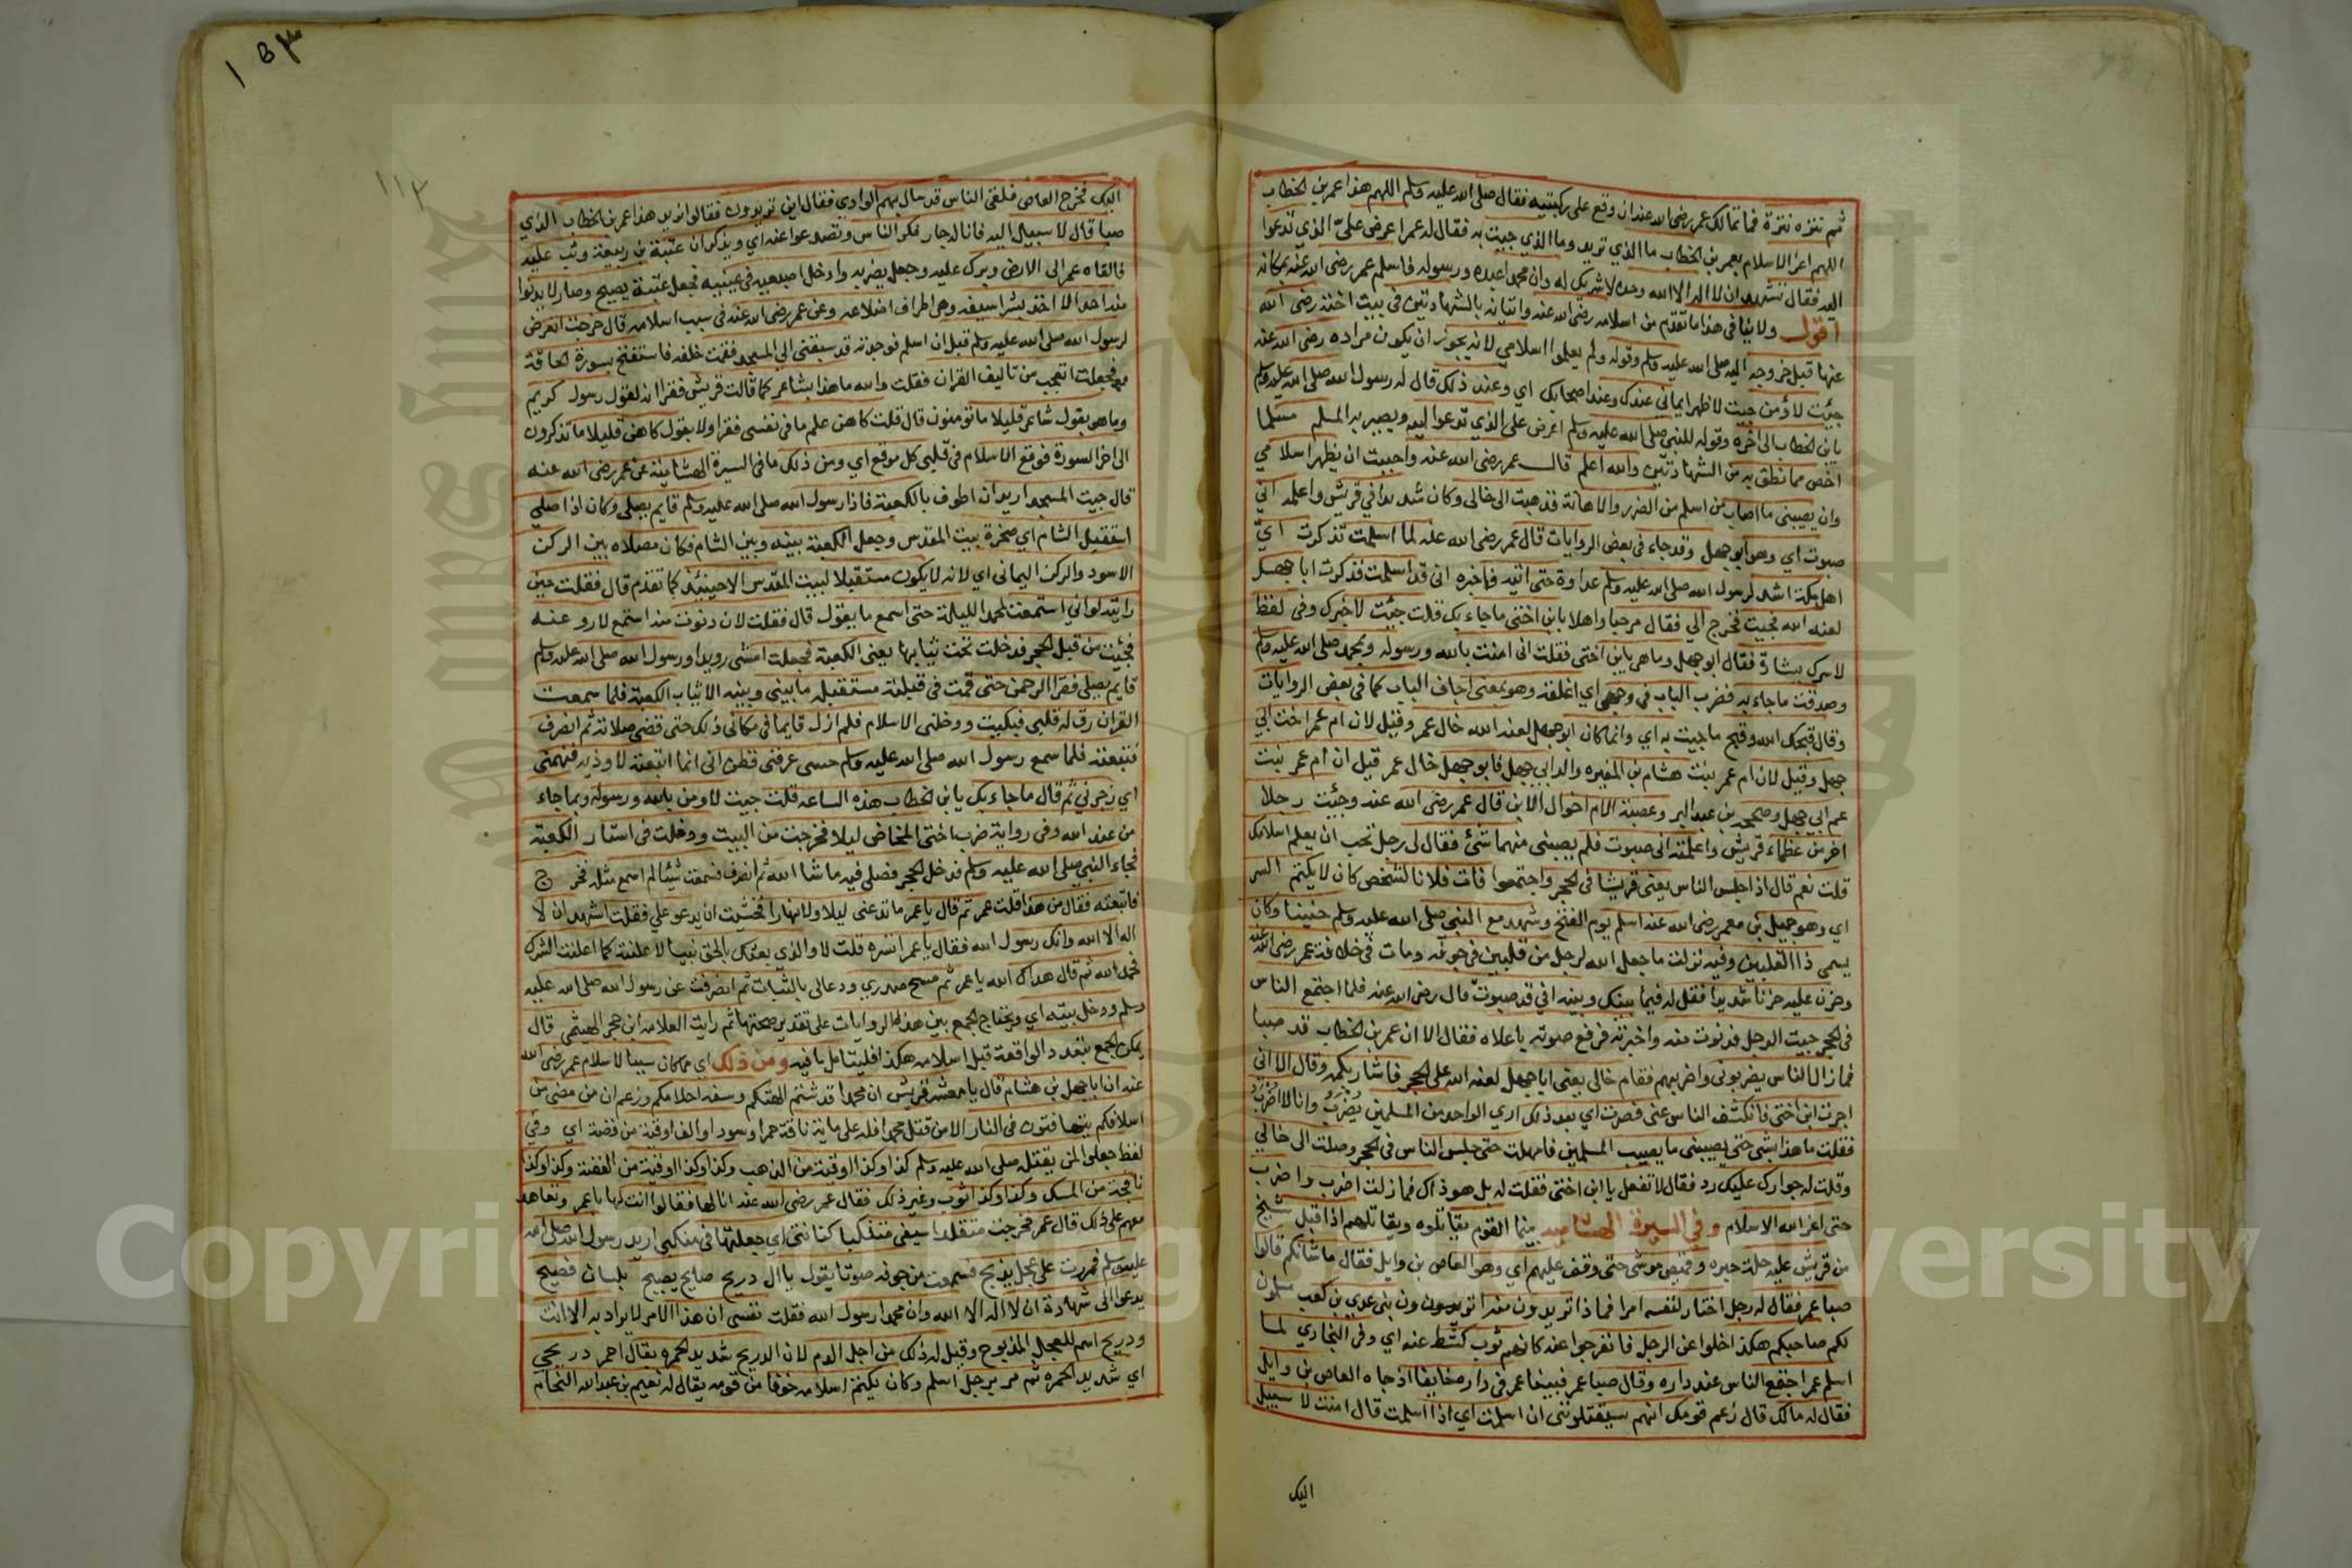 ثم نتره نترة فما تمالك عمر رضي الله عنه ان وقع على ركبتيه فقال صلى الله عليه وسلم اللهم هذا عمر بن الخطاب
اللهم اعز الاسلام بعمر بن الخطاب ما الذي تريد وما الذي جيت به فقال له عمر اعرض علىّ الذي تدعوا
اليه فقال تشهد ان لا اله الا الله وحده لا شريك له وان محمدا عبده ورسوله فاسلم عمر رضي الله عنه بمكانه
اقول ولا ينافي هذا ما تقدم من اسلامه رضي الله عنه واتيانه بالشهادتين في بيت اخته رضي الله
عنها قبل خروجه اليه صلى الله عليه وسلم وقوله ولم يعلموا اسلامي لانه يجوز ان يكون مراده رضي الله عنه
جيت لاؤمن جيت لاظهر ايماني عندك وعند اصحابك اي وعند ذلك قال له رسول الله صلى الله عليه وسلم
يابن الخطاب الى اخره وقوله للنبي صلى الله عليه وسلم اعرض على الذي تدعوا اليه ويصير به المسلم مسلما
اخص مما نطق به من الشهادتين والله اعلم قال عمر رضي الله عنه واحببت ان يظهر اسلامي
وان يصيبني ما اصاب من اسلم من الضرر والاهانة فذهبت الى خالى وكان شريفا في قريش واعلمته اني
صبوت اي وهو ابو جهل وقد جاء في بعض الروايات قال عمر رضي الله عنه لما اسلمت تذكرت ايّ
اهل مكة اشد لرسول الله صلى الله عليه وسلم عداوة حتى اتيه فاخبره اني قد اسلمت فذكرت ابا جهل
لعنه الله فجيت فخرج الي فقال مرحبا واهلا يابن اختي ما جاء بك قلت جئت لاخبرك وفي لفظ
لاسرك ببشارة فقال ابو جهل وما هي يابن اختي فقلت اني امنت بالله ورسوله محمد صلى الله عليه وسلم
وصدقت ما جاء به فضرب الباب في وجهي اي اغلقه وهو بمعنى اجاف الباب كما في بعض الروايات
وقال قبحك الله وقبح ما جيت به اي وانما كان ابو جهل لعنه الله خال عمر وقيل لان ام عمر اخت ابي
جهل وقيل لان ام عمر بنت هشام بن المغيره والد ابي جهل فابو جهل خال عمر قيل ان ام عمر بنت
عم ابي جهل وصححه بن عبد البر وعصبة الام اخوال الابن قال عمر رضي الله عنه وجئت رجلا
اخر من عظماء قريش واعلمته اني صبوت فلم يصبني منهما شئ فقال لي رجل تحب ان يعلم اسلامك
قلت نعم قال اذا جلس الناس يعني قريشا في الحجر واجتمعوا فات فلانا لشخص كان لا يكتم السر
اي وهو جميل بن معمر رضي الله عنه اسلم يوم الفتح وشهد مع النبي صلى الله عليه وسلم حنينا وكان
يسمى ذا القلبين وفيه نزلت ما جعل الله لرجل من قلبين في جوفه ومات في خلافة عمر رضي الله عنه
وحزن عليه حزنا شديدا فقل له فيما بينك وبينه اني قد صبوت قال رضي الله عنه فلما اجتمع الناس
في الحجر جيت الرجل فدنوت منه واخبرته فرفع صوته باعلاه فقال الا ان عمر بن الخطاب قد صبا
فما زال الناس يضربوني واضربهم فقام خالى يعني ابا جهل لعنه الله على الحجر فاشار بكمه وقال الا اني
اجرت ابن اختي فانكشف الناس عني فصرت اي بعد ذلك ارى الواحد من المسلمين يُضْرَبُ وانا لا اُضْرَبُ
فقلت ما هذا بشي حتى يصيبني ما يصيب المسلمين فامهلت حتى جلس الناس في الحجر وصلت الى خالي
وقلت له جوارك عليك رد فقال لا تفعل يا ابن اختي فقلت له بل هو ذاك فما زلت اضرب واضرب
حتى اعز الله الاسلام وفي السيرة الهشاميه بينما القوم يقاتلوه ويقاتلهم اذ اقبل شيخ
من قريش عليه حلة حبره وقميص موشى حتى وقف عليهم اي وهو العاص بن وايل فقال ما شانكم قالوا
صبا عمر فقال له رجل اختار لنفسه امرا فماذا تريدون منه اترون بني عدي بن كعب يسلمون
لكم صاحبكم هكذا خلوا عن الرجل فانفرجوا عنه كانهم ثوب كشط عنه اي وفي البخاري لما
اسلم عمر اجتمع الناس عند داره وقال صبا عمر فبينما عمر في داره خايفا اذ جاه العاص بن وايل
فقال له مالك قال زعم قومك انهم سيقتلوننى ان اسلمت اي اذا اسلمت قال امنت لا سبيل
اليك
اليك فخرج العاص فلقي الناس قد سال بهم الوادي فقال اين تريدون فقالوا نريد هذا عمر بن الخطاب الذي
صبا قال لا سبيل اليه فانا له جار فكر الناس وتصدعوا عنه اي ويذكر ان عتبة بن ربيعة وثب عليه
فالقاه عمر الى الارض وبرك عليه وجعل يضربه وادخل اصبعيه في عينيه فجعل عتبة يصيح وصار لا يدنوا
منه احد الا اخذ بشراسيفه وهي اطراف اضلاعه وعن عمر رضي الله عنه في سبب اسلامه قال خرجت اتعرض
لرسول الله صلى الله عليه وسلم قبل ان اسلم فوجدته قد سبقني الى المسجد فقمت خلفه فاستفتح بسورة الحاقة
فجعلت اتعجب من تاليف القران فقلت والله ما هذا بشاعر كما قالت قريش فقرا انه لقول رسول كريم
وما هو بقول شاعر قليلا ما تومنون قال قلت كاهن علم ما في نفسي فقرا ولا بقول كاهن قليلا ما تذكرون
الى اخر السورة فوقع الاسلام في قلبي كل موقع اي ومن ذلك ما في السيرة الهشامية عن عمر رضي الله عنه
قال جيت المسجد اريد ان اطوف بالكعبة فاذا رسول الله صلى الله عليه وسلم قايم يصلي وكان اذا صلى
استقبل الشام اي صخرة بيت المقدس وجعل الكعبة بينه وبين الشام فكان مصلاه بين الركن
الاسود والركن اليماني اي لانه لا يكون مستقبلا لبيت المقدس الا حينئذ كما تقدم قال فقلت حين
رايته لو اني استمعت لمحمد الليلة حتى اسمع ما يقول قال فقلت لان دنوت منه استمع لاروعنه
فجئت من قبل الحجر فدخلت تحت ثيابها يعني الكعبة فجعلت امشي رويدا ورسول الله صلى الله عليه وسلم
قايم يصلي فقرا الرحمن حتى قمت في قبلته مستقبله ما بيني وبينه الا ثياب الكعبة فلما سمعت
القران رق له قلبي فبكيت ودخلنى الاسلام فلم ازل قايما في مكاني ذلك حتى قضى صلاته ثم انصرف
فتبعته فلما سمع رسول الله صلى الله عليه وسلم حسي عرفني فظن اني انما اتبعته لاوذيه فنهمني
اي زجرني ثم قال ما جاء بك يا ابن الخطاب هذه الساعه قلت جيت لاومن بالله ورسوله وبما جاء
من عند الله وفي رواية ضرب اختي المخاض ليلا فخرجت من البيت ودخلت في استار الكعبة
فجاء النبي صلى الله عليه وسلم فدخل الحجر فصلى فيه ما شا الله ثم انصرف فسمعت شيئا لم اسمع مثله فخر ج
فاتبعته فقال من هذا قلت عمر ثم قال يا عمر ما تدعني ليلا ولا نهارا فخشيت ان يدعو علي فقلت اشهد ان لا
اله الا الله وانك رسول الله فقال يا عمر استره قلت لا والذي بعثك بالحق نبيا لاعلنته كما اعلنت الشرك
فحمد الله ثم قال هداك الله يا عمر ثم مسح صدري ودعا لى بالثبات ثم انصرفت عن رسول الله صلى الله عليه
وسلم ودخل بيته اي ويحتاج للجمع بين هذه الروايات على تقدير صحتها ثم رايت العلامه ابن حجر الهيثمي قال
يمكن الجمع بتعدد الواقعة قبل اسلامه هكذا فليتامل ما فيه ومن ذلك اي مما كان سببا لاسلام عمر رضي الله
عنه ان ابا جهل بن هشام قال يا معشر قريش ان محمدا قد شتم الهتكم وسفه احلامكم وزعم ان من مضى من
اسلافكم يتهافتون في النار الا من قتل محمدا فله على ماية ناقة حمرا وسودا والف اوقية من فضة اي وفي
لفظ جعلوا لمن يقتله صلى الله عليه وسلم كذا وكذا اوقية من الذهب وكذا وكذا اوقية من الفضة وكذا وكذا
نافجة من المسك وكذا وكذا ثوب وغير ذلك فقال عمر رضي الله عنه انا لها فقالوا انت لها يا عمر وتعاهد
معهم على ذلك قال عمر فخرجت متقلدا سيفي متنكبا كنانتي اي جعلتها في منكبي اريد رسول الله صلى الله
عليه وسلم فمررت على عجل يذبح فسمعت من جوفه صوتا يقول يا ال ذريح صايح يصيح بلسان فصيح
يدعوا الى شهادة ان لا اله الا الله وان محمدا رسول الله فقلت نفسي ان هذا الامر لا يراد به الا انت
وذريح اسم للعجل المذبوح وقيل له ذلك من اجل الدم لان الذريح شديد الحمره يقال احمر ذريحي
اي شديد الحمره ثم مر برجل اسلم وكان يكتم اسلامه خوفا من قومه يقال له نعيم بن عبد الله النحام